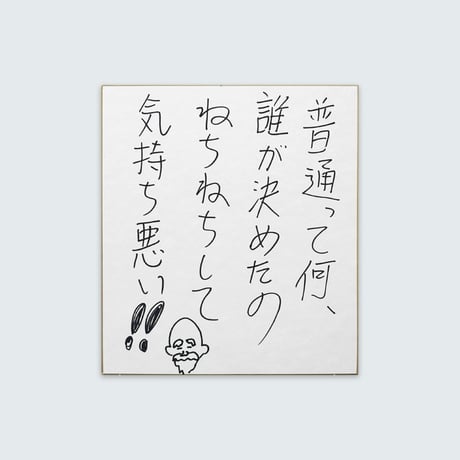 普通って何、
誰が決めたの
ねちねちして
気持ち悪い!!